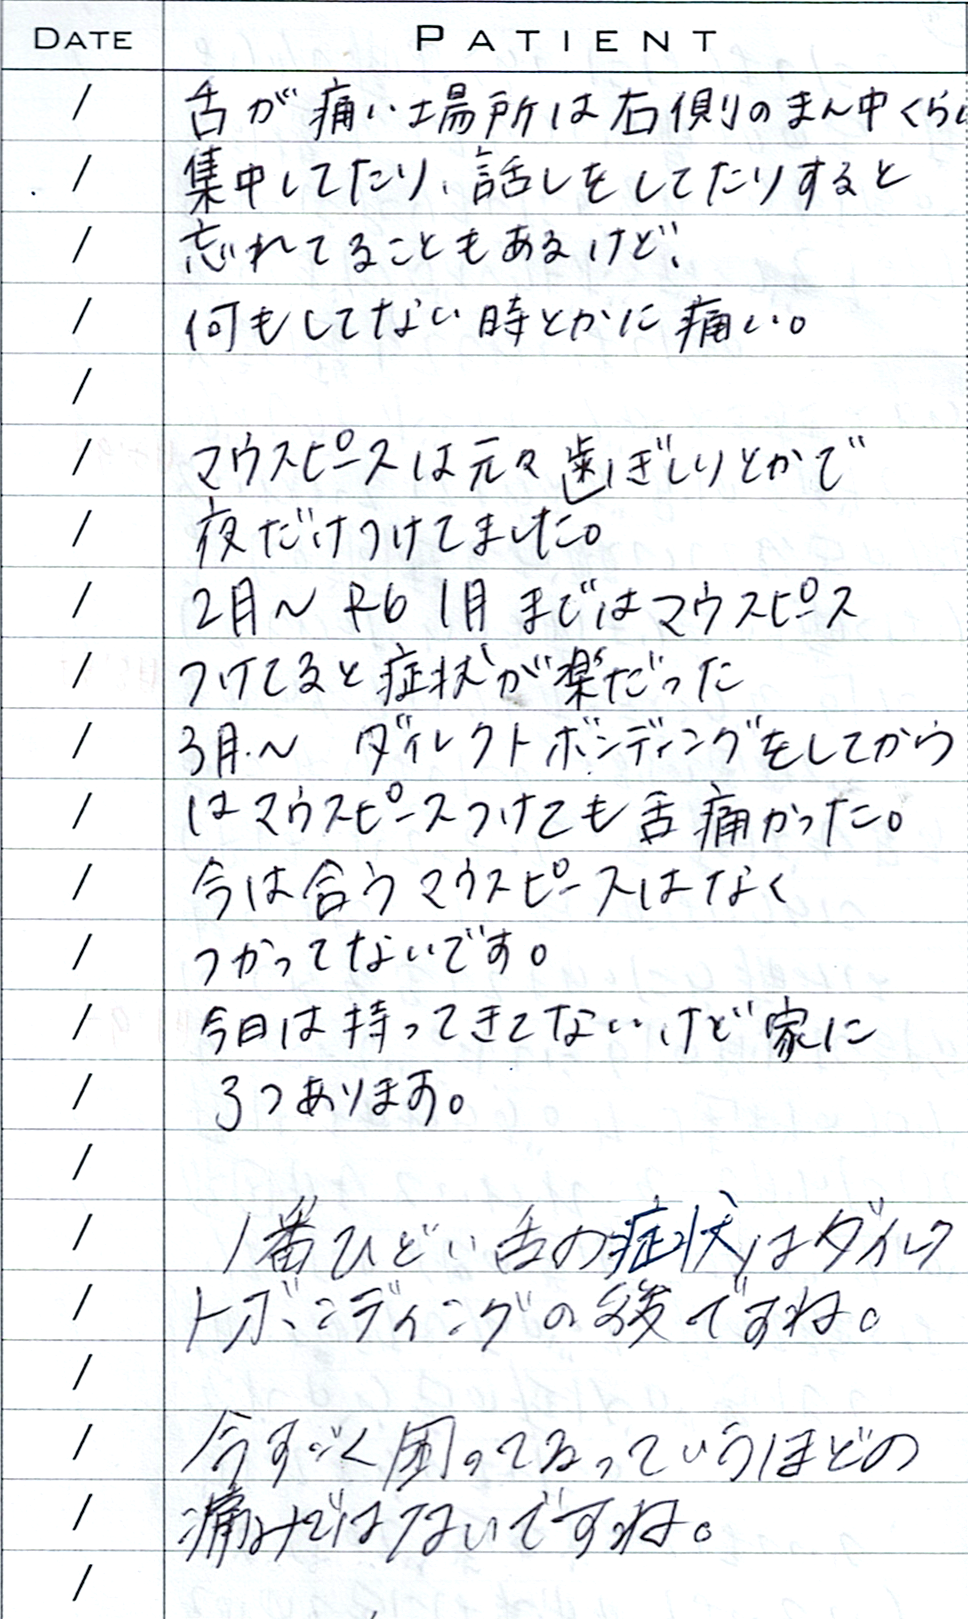 DATE PATIENT
/ 舌が痛い場所は右側のまん中くらい
/ 集中してたり、話しをしてたりすると
/ 忘れてることもあるけど、
/ 何もしてない時とかに痛い。
/
/ マウスピースは元々歯ぎしりとかで
/ 夜だけつけてました。
/ 2月〜R6 1月まではマウスピース
/ つけてると症状が楽だった
/ 3月〜 ダイレクトボンディングをしてから
/ はマウスピースつけても舌痛かった。
/ 今は合うマウスピースはなく
/ つかってないです。
/ 今日は持ってきてないけど家に
/ 3つあります。
/
/ 1番ひどい舌の症状はダイレク
/ トボンディングの後ですね。
/
/ 今すごく困ってるっていうほどの
/ 痛みではないですね。
/